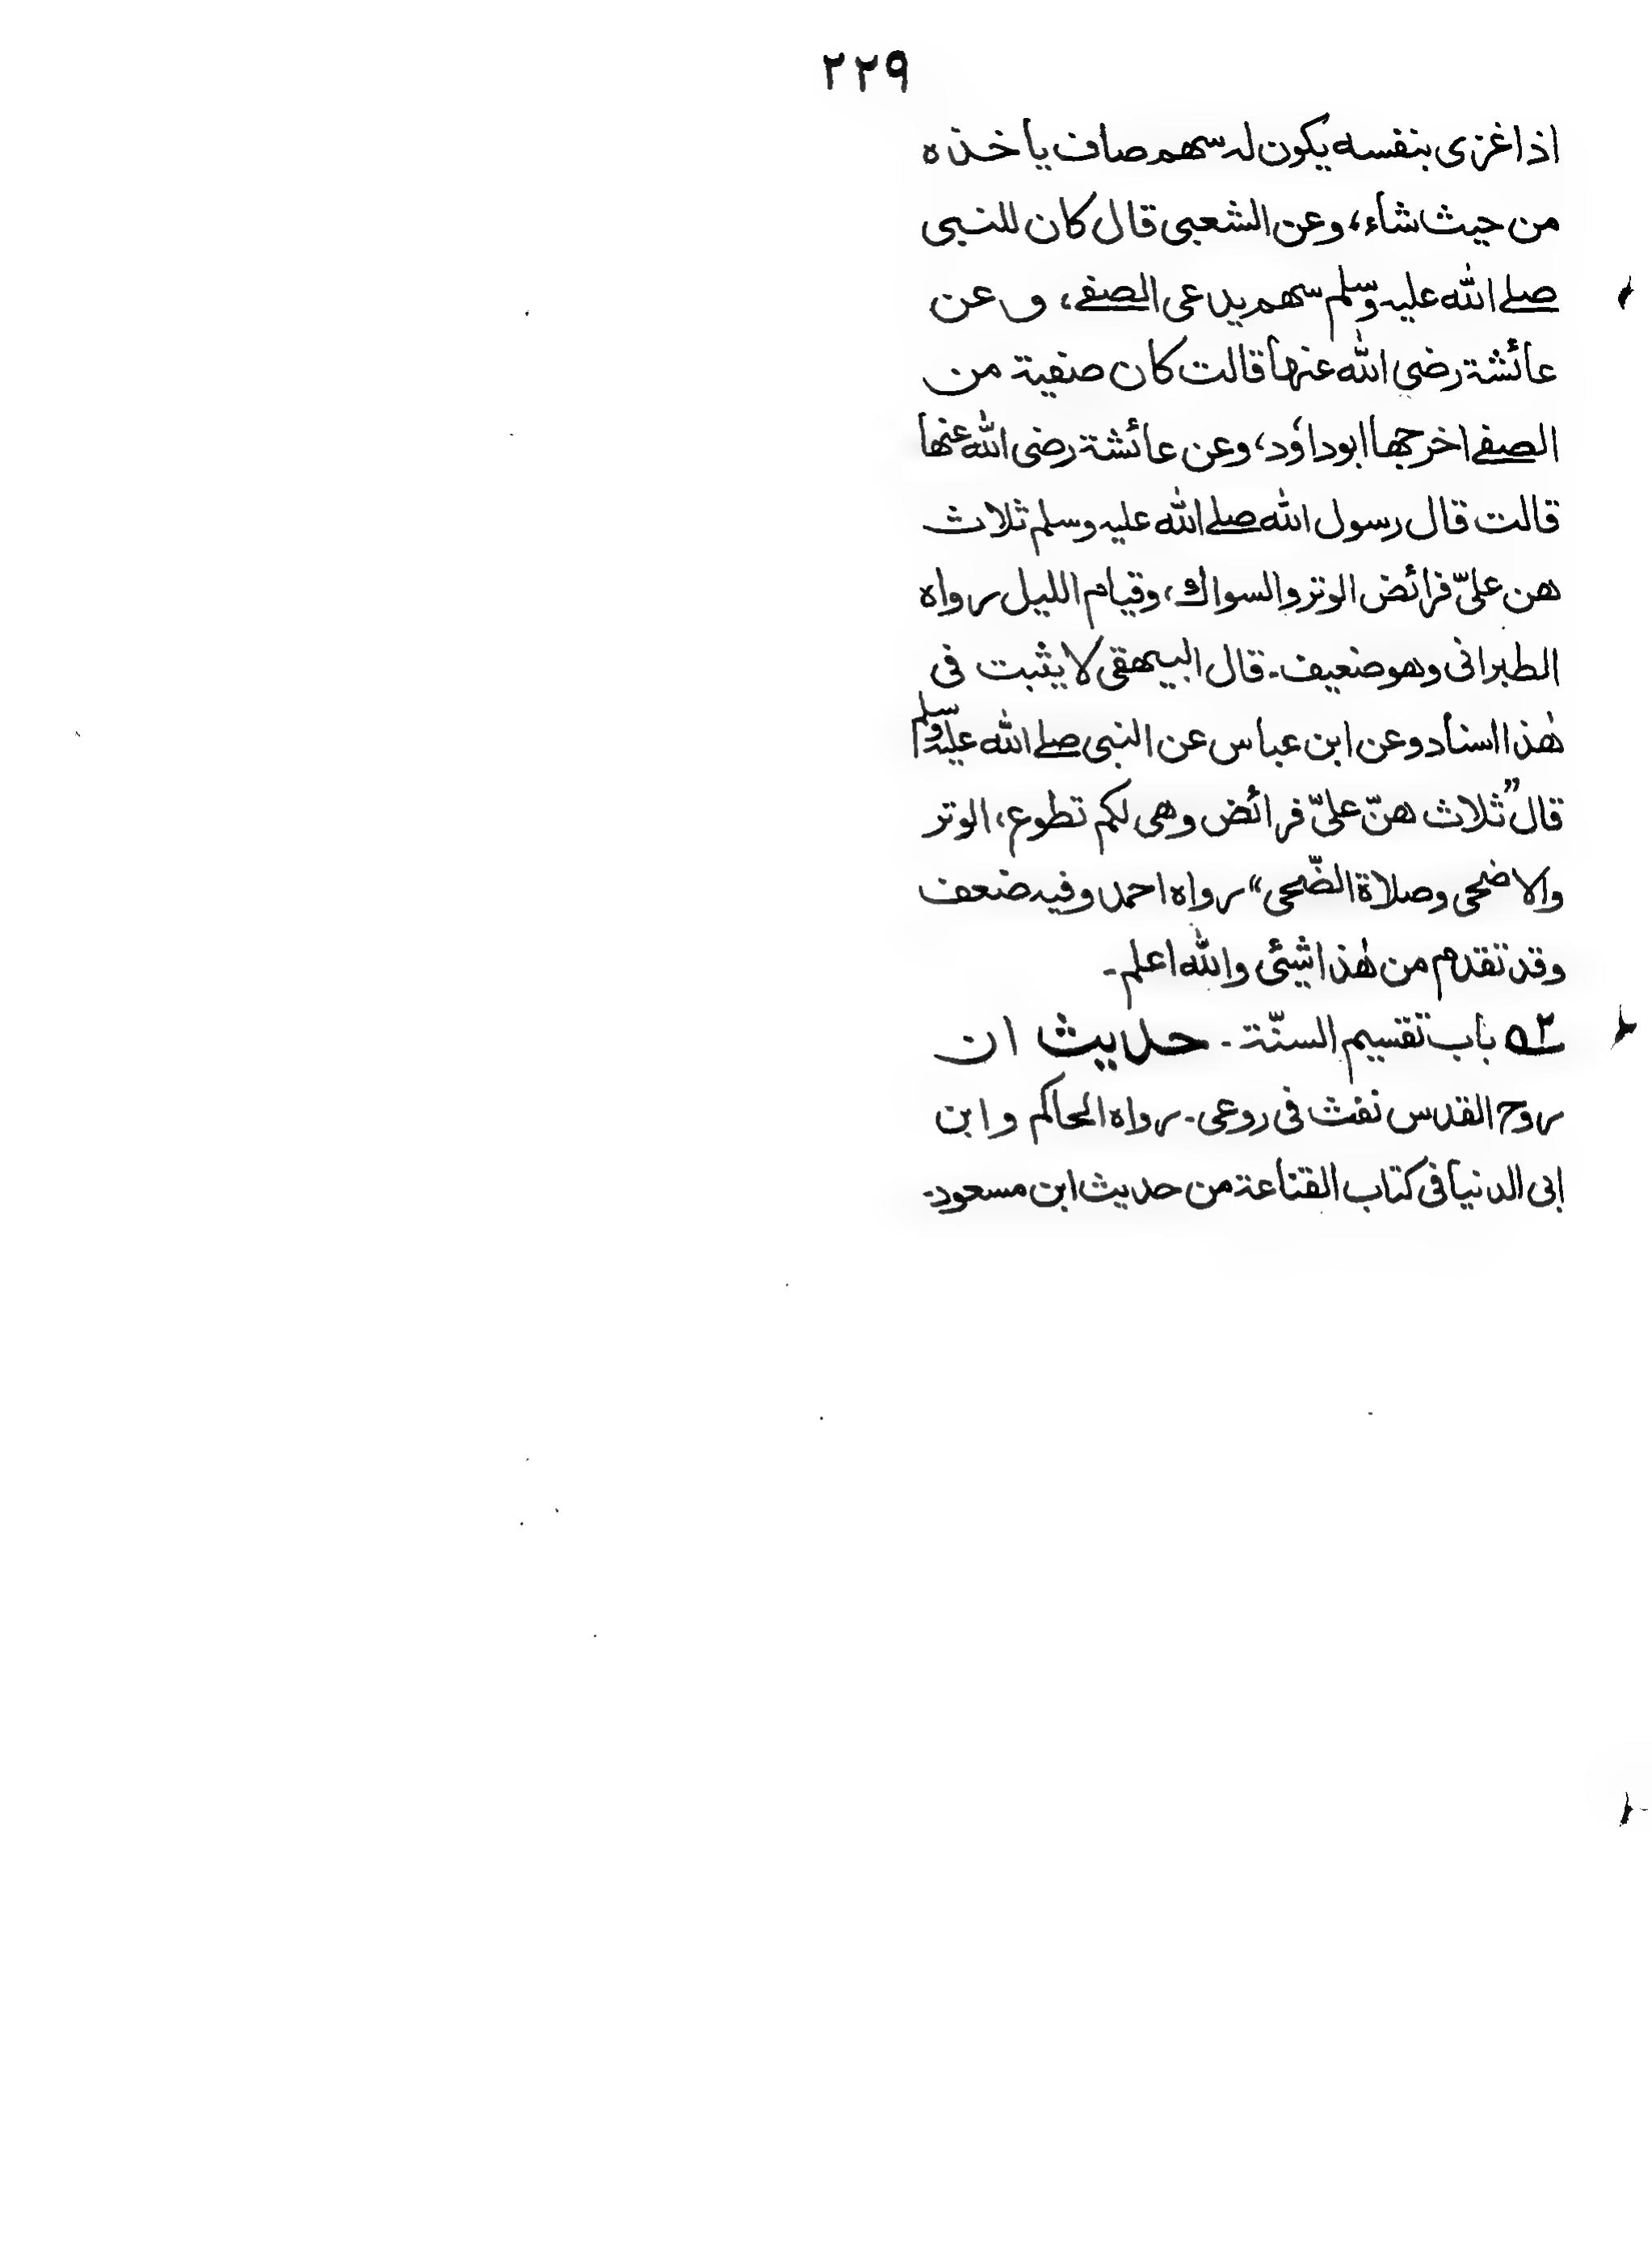 ٢٢٩
اذا غزى بنفسه يكون له سهم صاف يا خذه
من حيث شاء، وعن الشعبى قال كان للنبى
صلے الله عليه وسلم سهم يدعى الصفے، و عن
عائشة رضى الله عنها قالت كان صفية من
الصفے اخرجها ابوداؤد، وعن عائشة رضى الله عنها
قالت قال رسول الله صلے الله عليه وسلم ثلاث
هن علىّ فرائض الوتر والسواك، وقيام الليل رواه
الطبرانى وهو ضعيف۔ قال البيهقى لا يثبت فى
هٰذا اسناد وعن ابن عباس عن النبى صلے الله عليه وسلم
قال ”ثلاث هنّ علىّ فرائض وهى لكم تطوع، الوتر
والاضحى وصلاة الضّحى“ رواه احمد وفيه ضعف
وقد تقدم من هٰذا شيئى والله اعلم۔
٥٢ باب تقسيم السنّة۔ حديث ان
روح القدس نفث فى روعى۔ رواه الحاكم و ابن
ابى الدنيا فى كتاب القناعة من حديث ابن مسعود۔